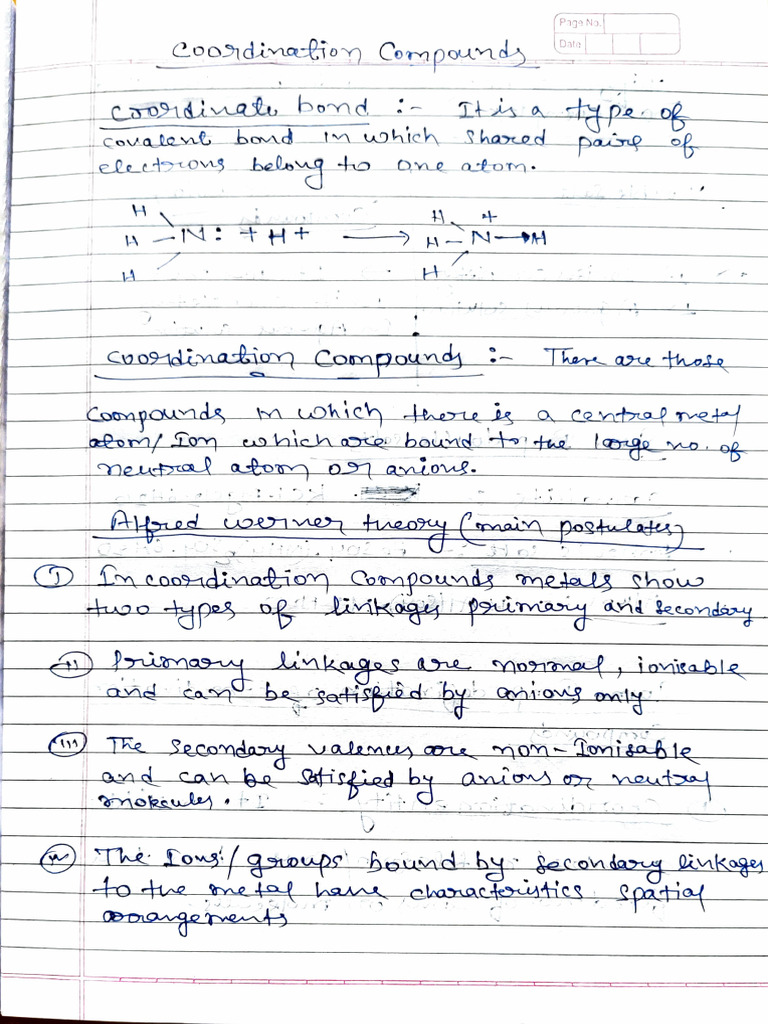 Page No.
Date
Coordination Compounds
Coordinate bond :- It is a type of
covalent bond in which shared pairs of
electrons belong to one atom.
H H +
H - N: + H+ → H - N → H
H H
Coordination Compounds :- There are those
Coompounds in which there is a central metal
atom/Ion which are bound to the large no. of
neutral atom or anions.
Alfred werner theory (main postulates)
I In coordination Compounds metals show
two types of linkages primary and secondary
II Primary linkages are normal, ionisable
and can be satisfied by anions only.
III The secondary valences are non-Ionisable
and can be satisfied by anions or neutral
molecules.
IV The Ions/groups bound by secondary linkages
to the metal have characteristics spatial
arrangements